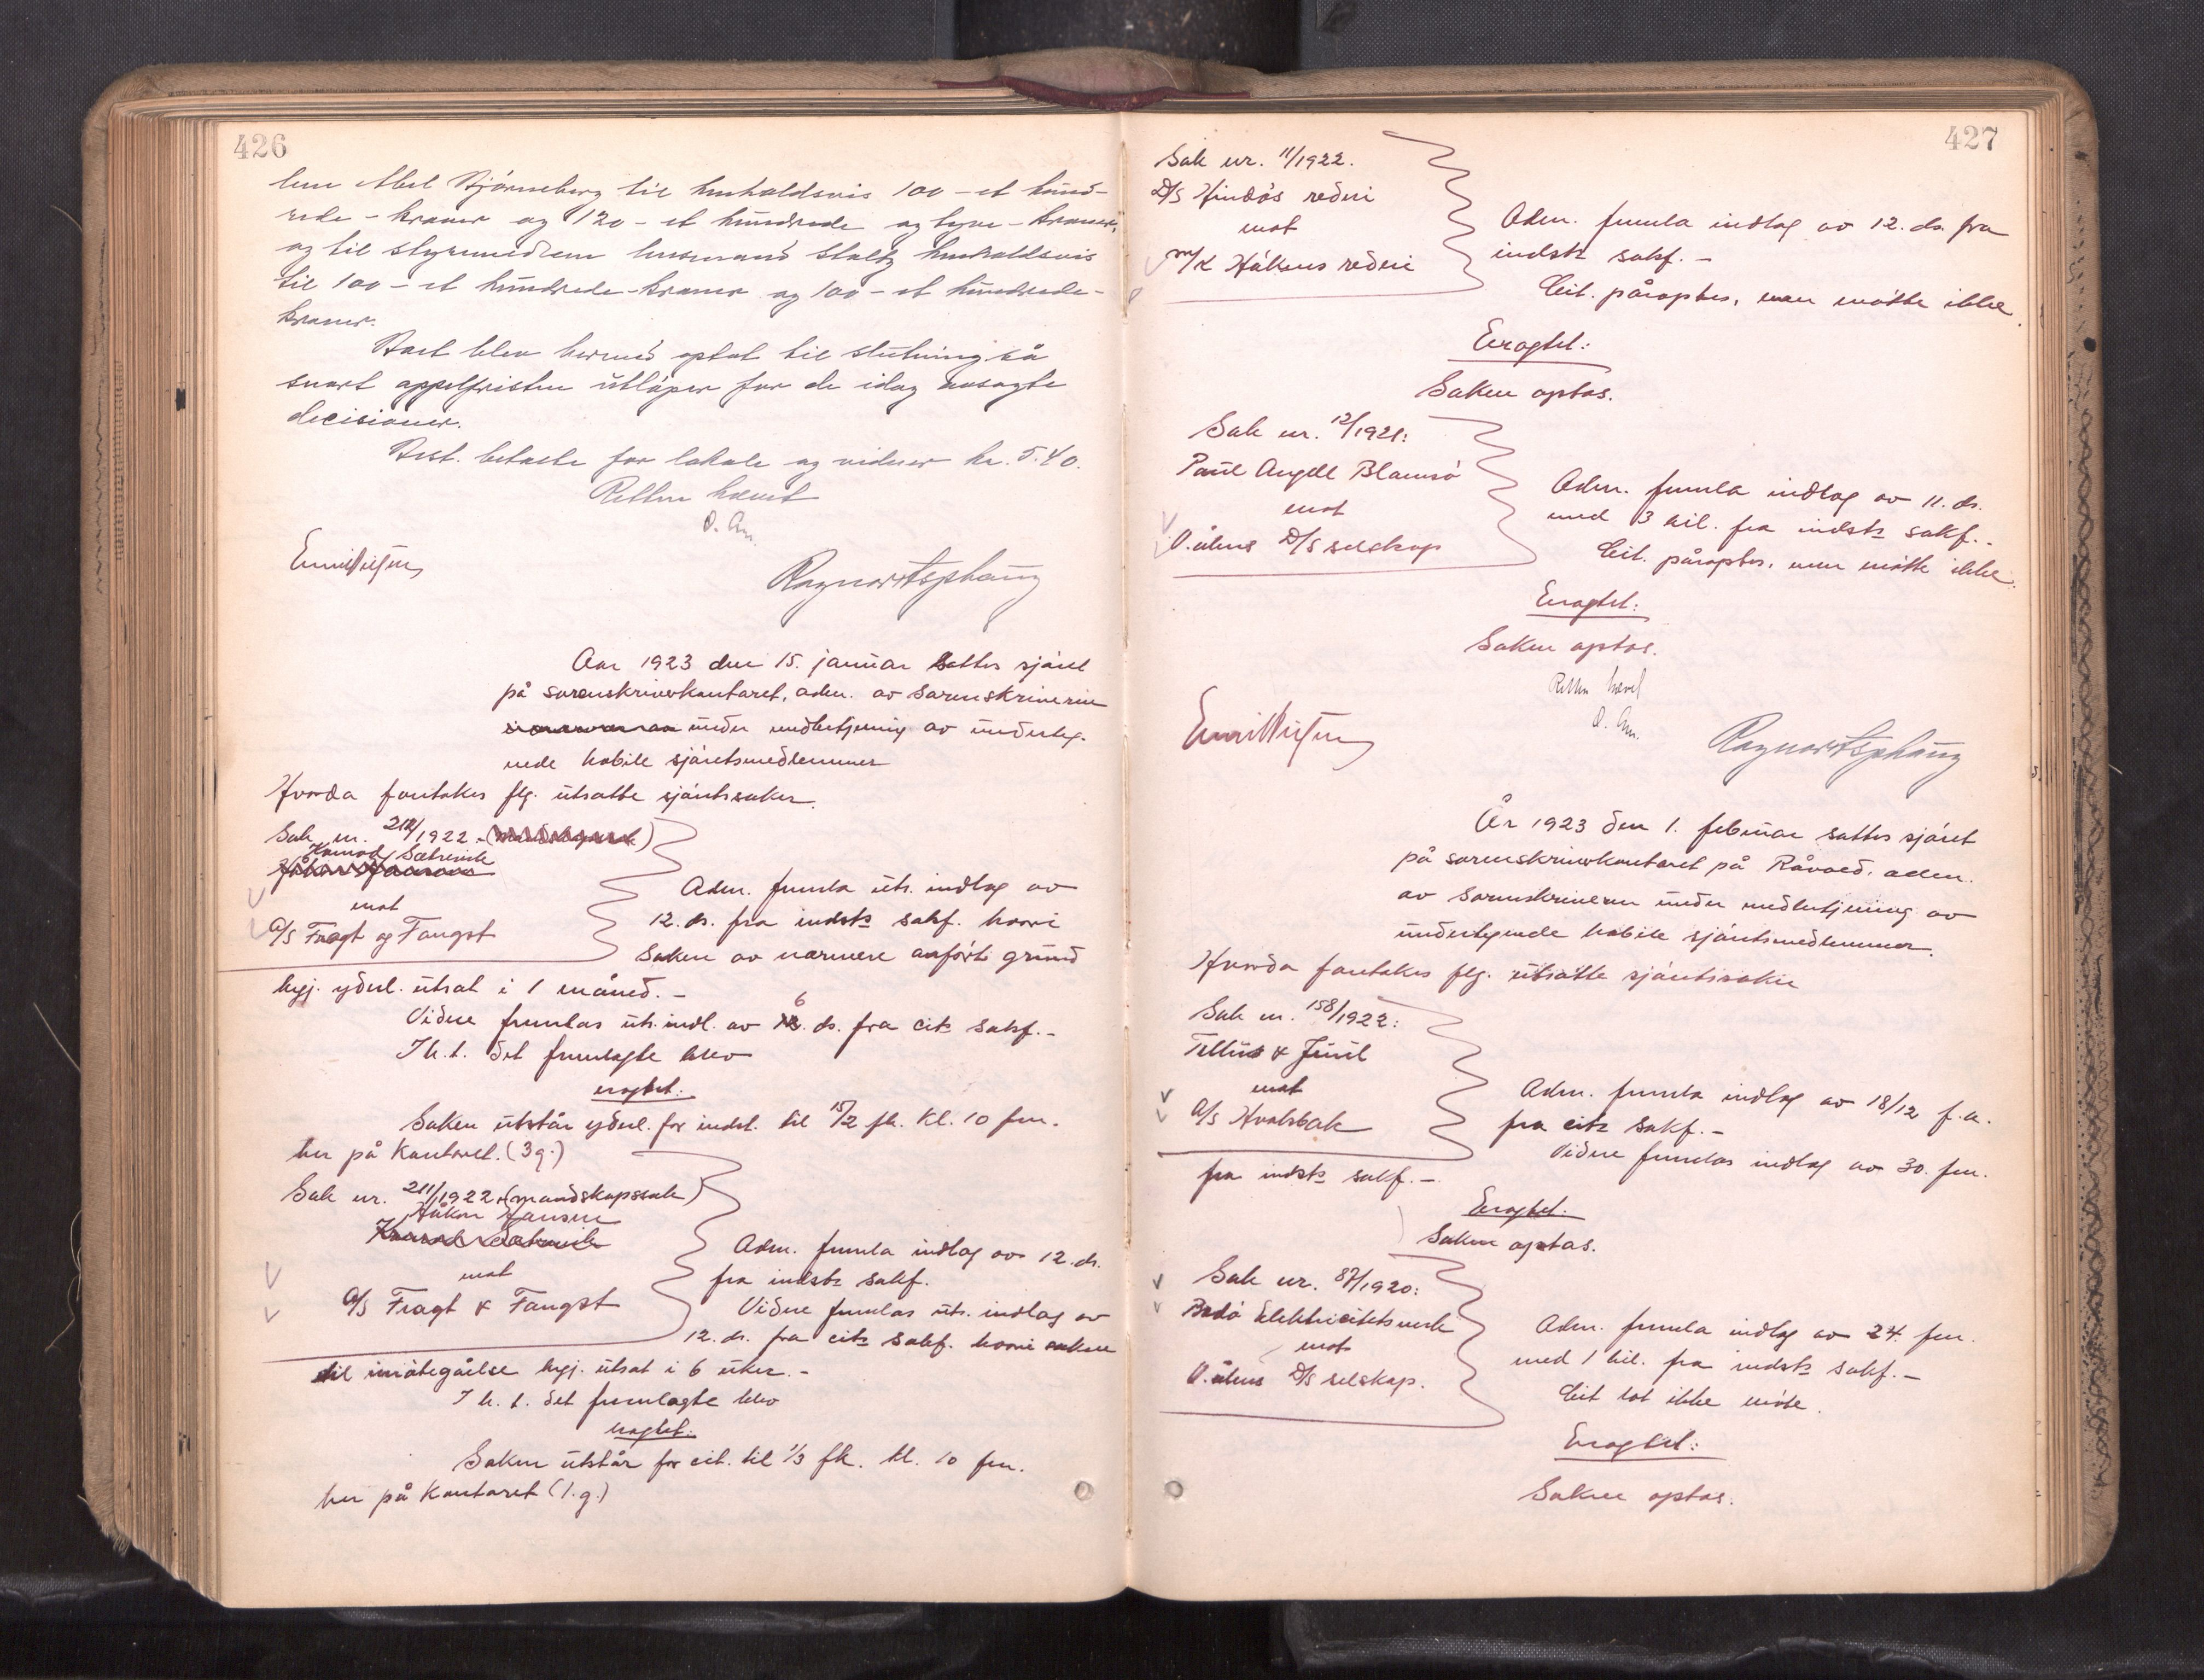 426
Abel Bjørneberg til husholdsvis 100 - et hund-
rede - kroner og 120 - et hundrede og tyve - kroner,
og til styrmed husmand Staltz husholdsvis
til 100 - et hundrede - kroner og 100 - et hundrede -
kroner.
blev hermed optat til slutning så
snart appelfristen utløper for de idag avsagte
decisioner.
Best. betalte for lokale og vidner kr. 5.40.
Retten hævet
O. Am.
Ragnar Asphaug
Aar 1923 den 15. januar sattes sjøret
på sorenskriverkontoret, adm. av sorenskriveren
under medbetjening av underteg-
nede habile sjøretsmedlemmer
Hvorda foretokes flg. utsatte sjøretssaker.
Sak nr. 212/1922
Konrad Sætrevik
mot
A/S Fragt og Fangst
Adm. fremla uts. indlag av
12. ds. fra indsts sakf. hvori
saken av nærmere anført grund
begj. yderl. utsat i 1 måned. -
Videre fremlas uts. indl. av 6. ds. fra cits sakf. -
I h. t. det fremlagte blev
eragtet:
Saken utstår yderl. for indst. til 15/2 fk. kl. 10 fm.
her på kontoret. (3 g.)
Sak nr. 211/1922. (mandskapssak)
Håkon Hansen
Konrad Sætrevik
mot
A/S Fragt & Fangst
Adm. fremla indlag av 12. ds.
fra indsts sakf.
Videre fremlas uts. indlag av
12. ds. fra cits sakf. hvori saken
til imøtegåelse begj. utsat i 6 uker. -
I h. t. det fremlagte blev
eragtet:
Saken utstår for cit. til 1/3 fk. kl. 10 fm.
her på kontoret (1. g.)
427
Sak nr. 11/1922.
D/S Hindøs rederi
mot
M/K Håkons rederi
Adm. fremla indlag av 12. ds. fra
indsts sakf. -
Cit. påroptes, men møtte ikke.
Eragtet:
Saken optas.
Sak nr. 12/1921:
Paul Angell Blamsø
mot
V.ålens D/S selskap
Adm. fremla indlag av 11. ds.
med 3 bil. fra indsts sakf. -
Cit. påroptes, men møtte ikke.
Eragtet:
Saken optas.
Retten hævet
O. Am.
Ragnar Asphaug
År 1923 den 1. februar sattes sjøret
på sorenskriverkontoret på Råvoed. adm.
av sorenskriveren under medbetjening av
undertegnede habile sjøretsmedlemmer.
Hvorda foretokes flg. utsatte sjøretssaker
Sak nr. 158/1922:
Tellus & Juul
mot
A/S Hvalsbak
Adm. fremla indlag av 18/12 f.a.
fra cits sakf. -
Videre fremlas indlag av 30. fm.
fra indsts sakf. -
Eragtet:
Saken optas.
Sak nr. 87/1920:
Bodø Elektricitetsverk
mot
V.ålens D/S selskap.
Adm. fremla indlag av 24. fm.
med 1 bil. fra indsts sakf. -
Cit lot ikke møte.
Eragtet:
Saken optas.